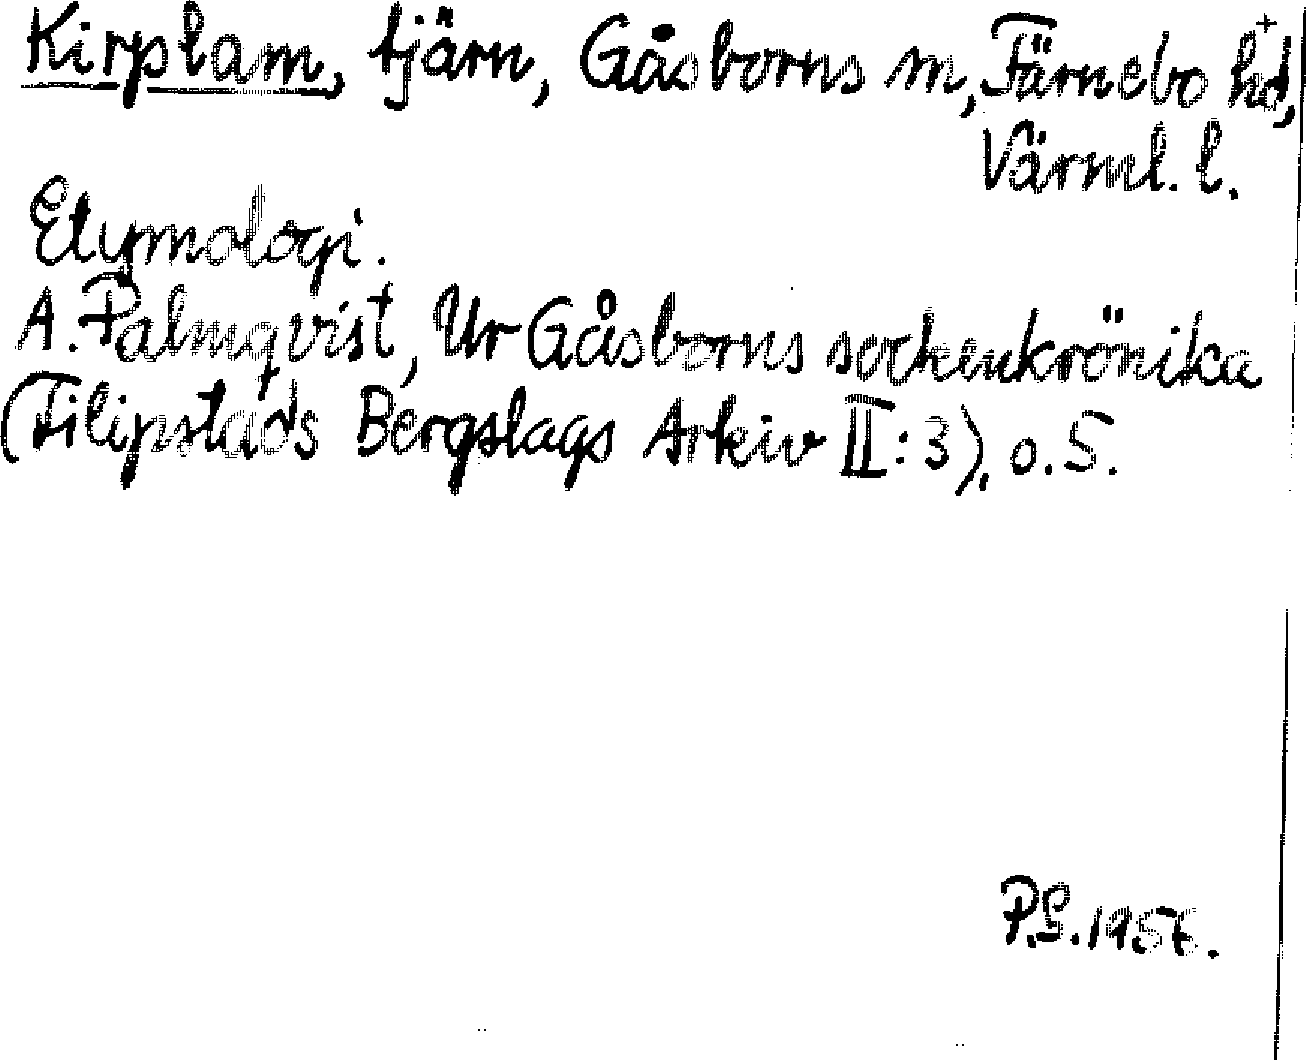 Kirplam, tjärn, Gåsborns sn, Färnebo hd,
Värml. l.
Etymologi.
A. Palmqvist, Ur Gåsborns sockenkrönika
(Filipstads Bergslags Arkiv II:3), s. 5.
P.S. 1956.